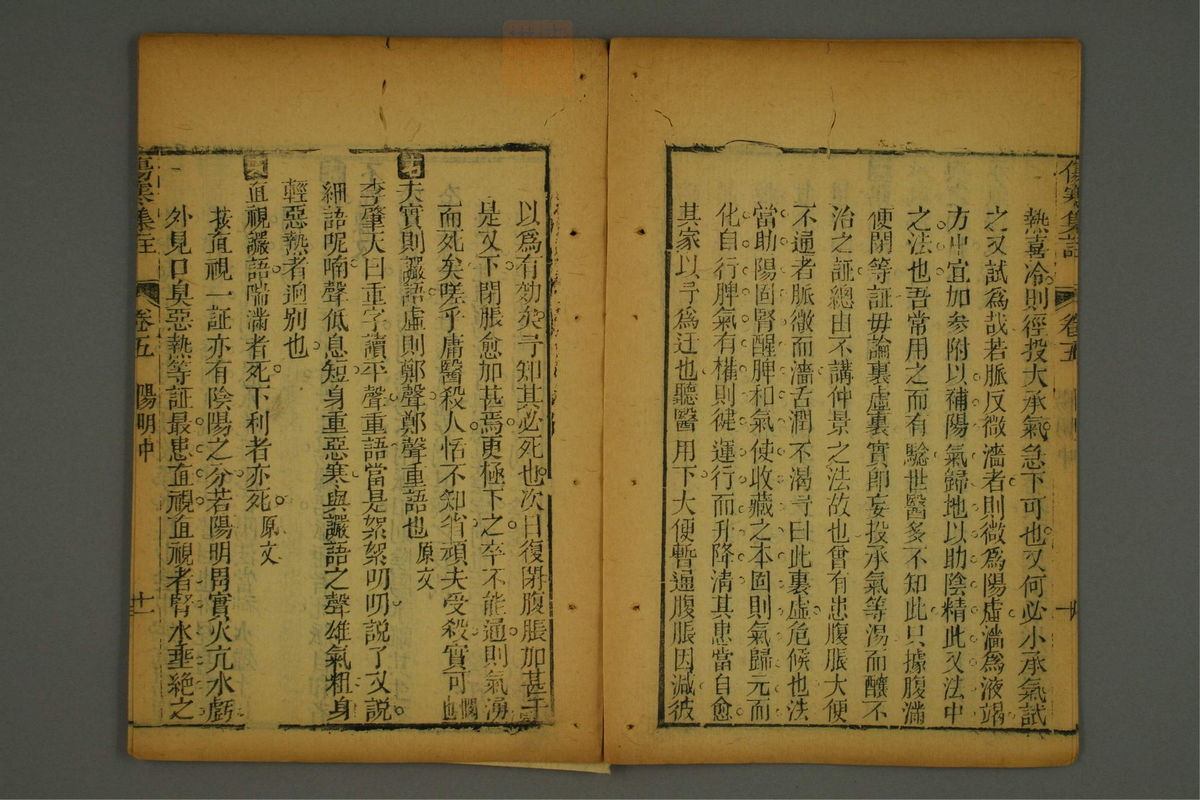 傷寒集註 卷五
熱喜冷則徑投大承氣急下可也又何必小承氣試
之又試爲哉若脈反微濇者則微爲陽虛濇爲液竭
方中宜加參附以補陽氣歸地以助陰精此又法中
之法也吾常用之而有驗世醫多不知此只據腹滿
便閉等証毋論裏虛裏實即妄投承氣等湯而釀不
治之証總由不講仲景之法故也曾有患腹脹大便
不通者脈微而濇舌潤不渴予曰此裏虛危候也法
當助陽固腎醒脾和氣使收藏之本固則氣歸元而
化自行脾氣有權則健運行而升降清其患當自愈
其家以予爲迂也聽醫用下大便暫通腹脹因減彼
以爲有効矣予知其必死也次日復閉腹脹加甚于
是又下閉脹愈加甚焉更極下之卒不能通則氣湧
而死矣嗟乎庸醫殺人恬不知省頑夫受殺實可憫也
夫實則讝語虛則鄭聲鄭聲重語也 原文
李肇夫曰重字讀平聲重語當是絮絮叨叨說了又說
細語呢喃聲低息短身重惡寒與讝語之聲雄氣粗身
輕惡熱者迥別也
直視讝語喘滿者死下利者亦死 原文
按直視一証亦有陰陽之分若陽明胃實火亢水虧
外見口臭惡熱等証最患直視直視者腎水垂絕之
傷寒集註 卷五 陽明中 十一